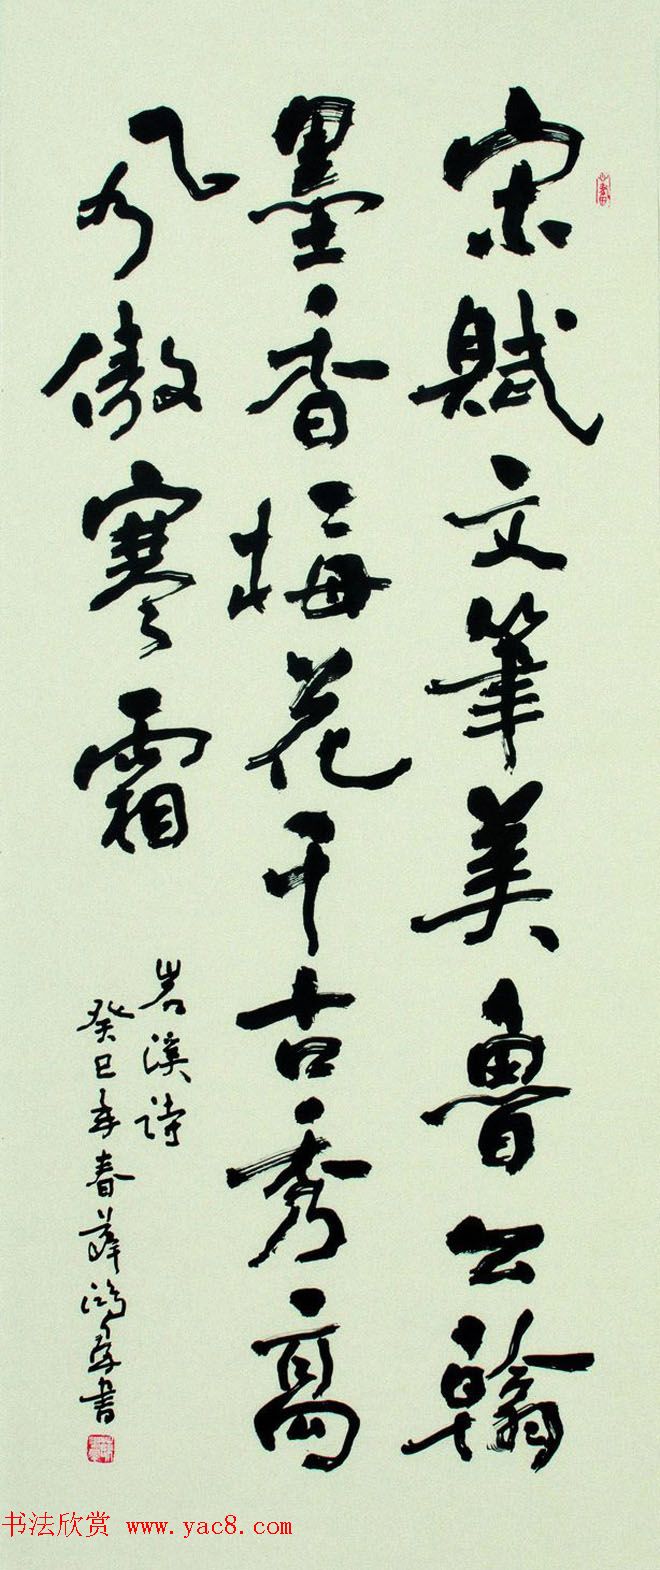 宋賦文筆美魯公翰
墨香梅花千古秀高
風傲寒霜
岩溪詩
癸巳年春薛鴻書
书法欣赏 www.yac8.com